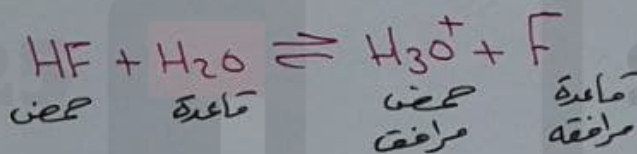 HF + H₂O ⇌ H₃O⁺ + F
حمض قاعدة حمض مرافق قاعدة مرافقه